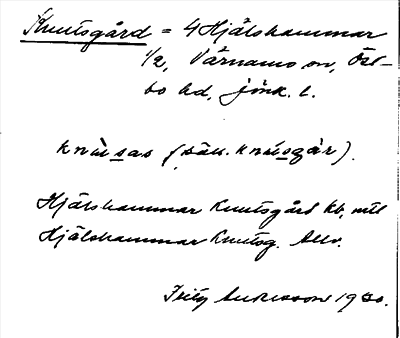 Knutsgård = 4 Hjälshammar
1/2, Värnamo sn, Öst-
bo hd, Jönk. l.
knùsas (säll. knusgår).
Hjälshammar Knutsgård kb, mtl
Hjälshammar Knutsg. Allv.
Fritz Andersson 1930.